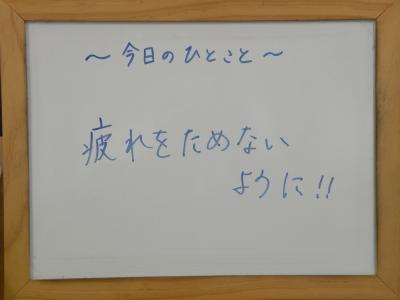 ～今日のひとこと～
疲れをためない
ように!!